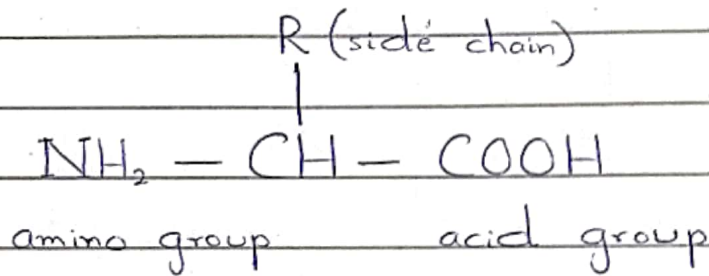 R (side chain)
NH₂ — CH — COOH
amino group acid group